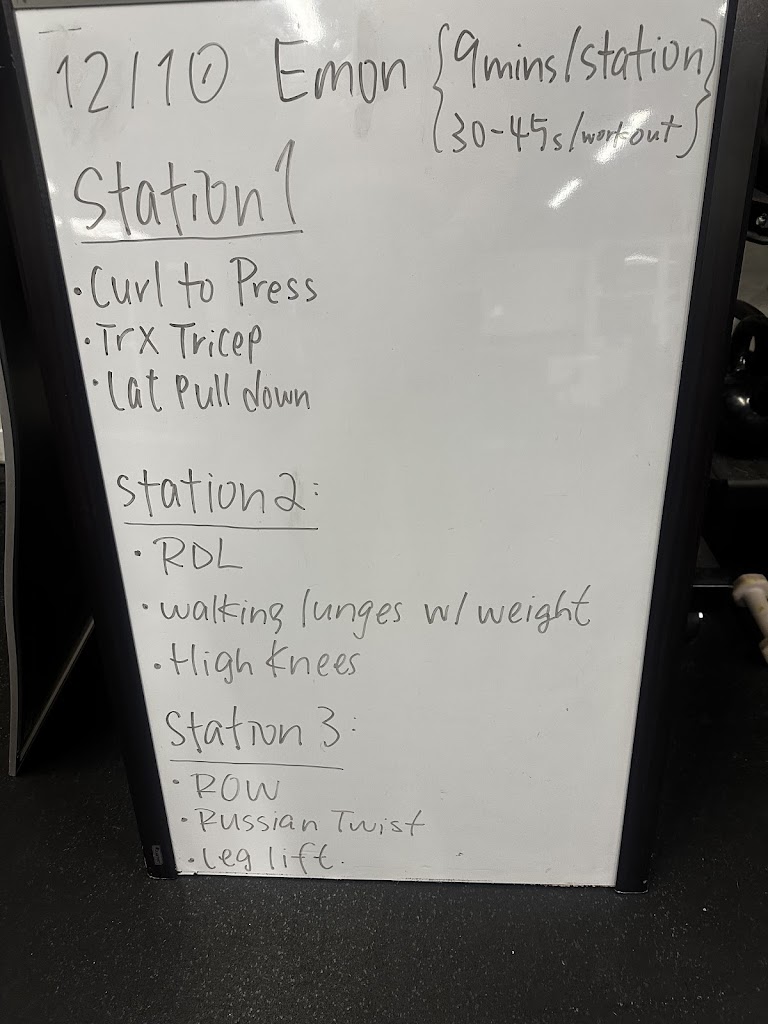 12/10 Emon {9mins/station
30-45s/workout}
Station 1
• Curl to Press
• Trx Tricep
• Lat pull down
Station 2:
• RDL
• walking lunges w/ weight
• High Knees
Station 3:
• ROW
• Russian Twist
• Leg lift.